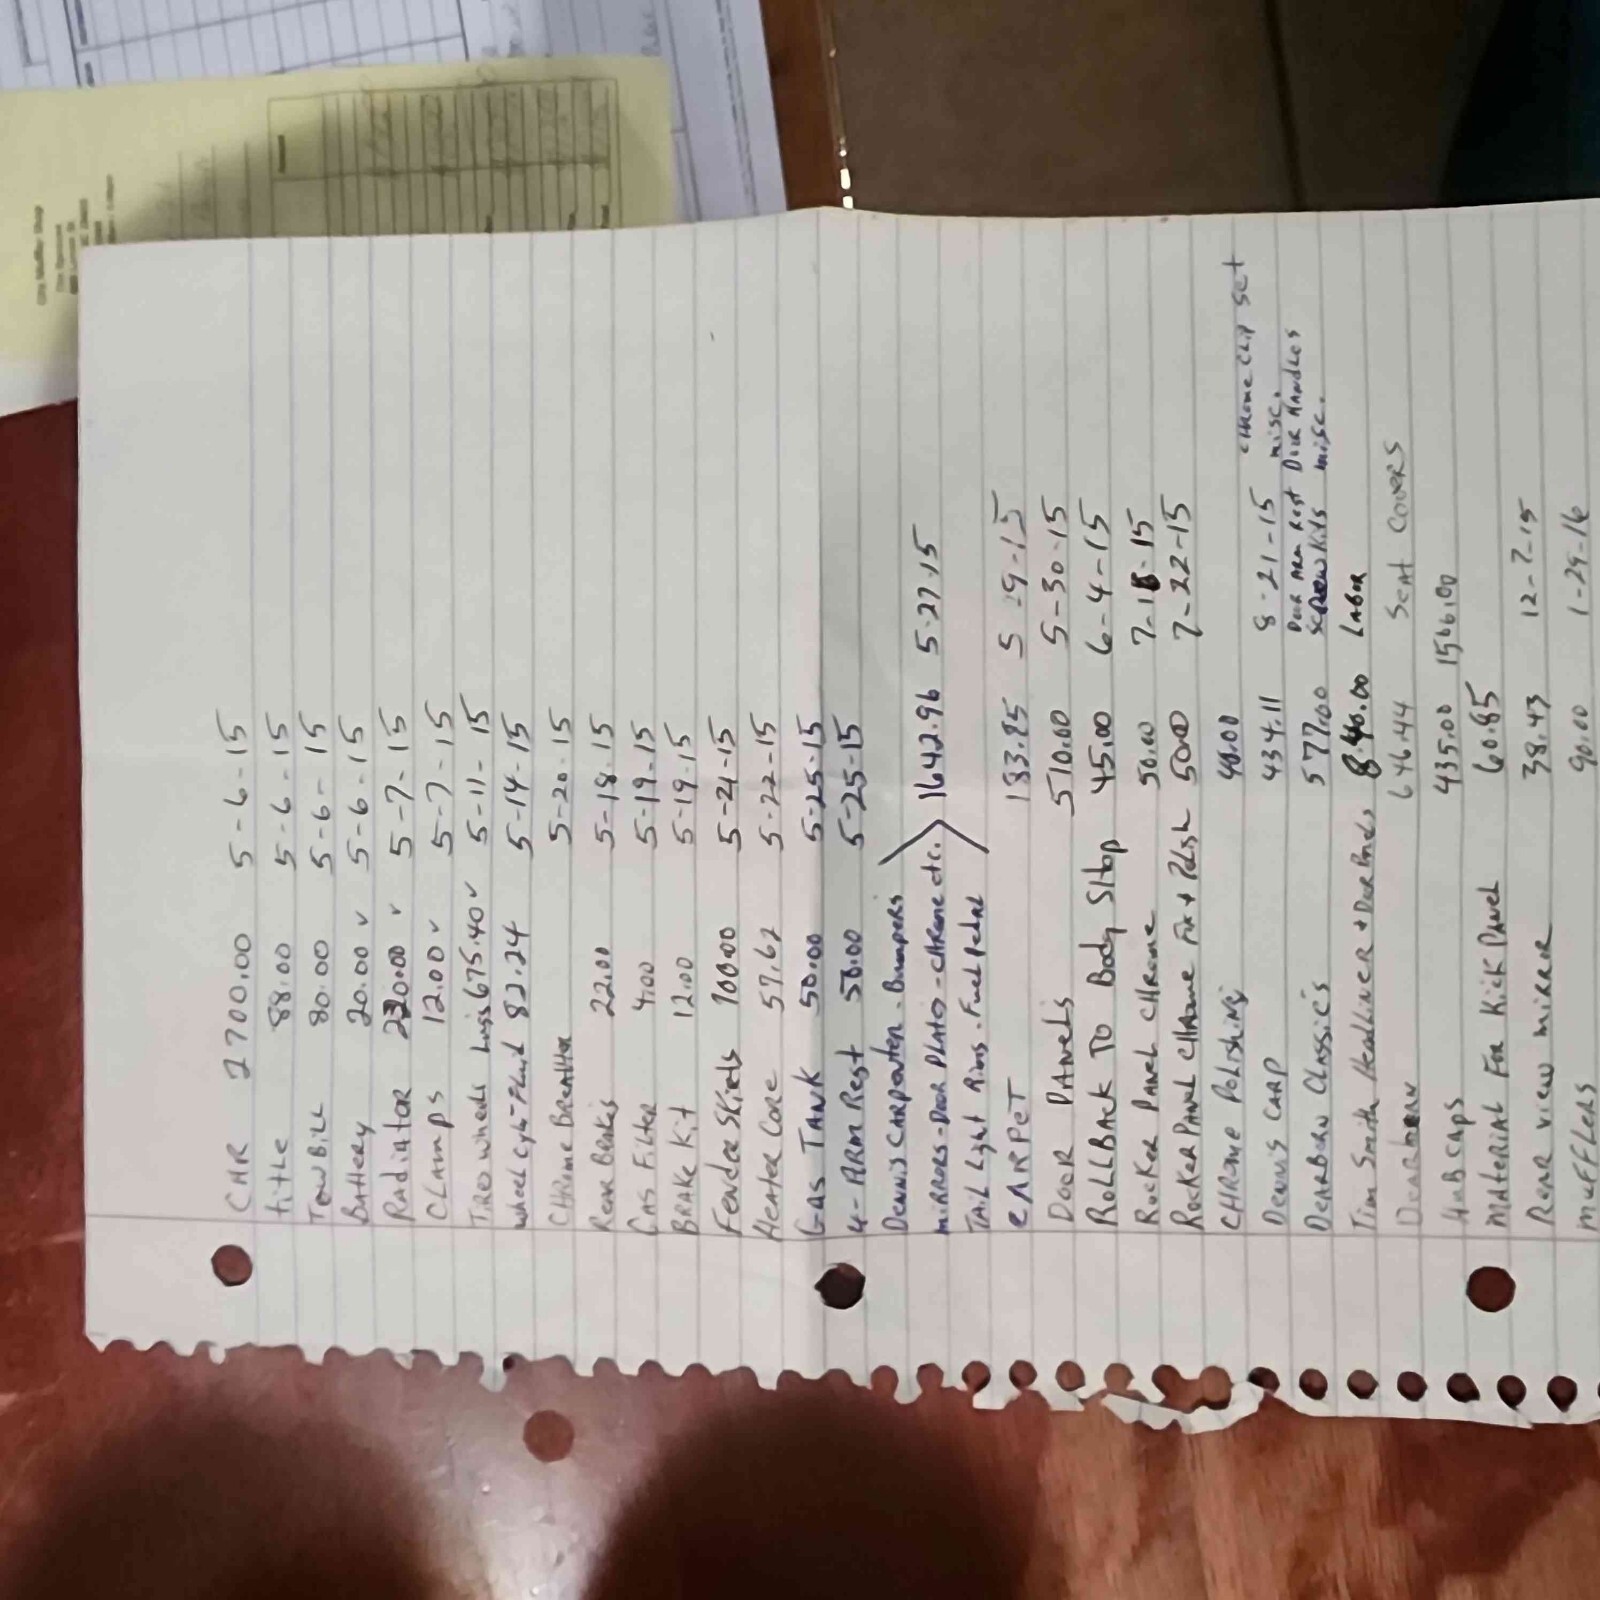 CAR 2700.00 5-6-15
title 88.00 5-6-15
Tow Bill 80.00 5-6-15
Battery 20.00 v 5-6-15
Radiator 220.00 v 5-7-15
CLAMPS 12.00 v 5-7-15
TIRO wheels Lugs 675.40 v 5-11-15
wheel cyl-Fluid 82.24 5-14-15
CHrome BreatHer 5-20-15
Rear Brakes 22.00 5-18-15
Gas Filter 4.00 5-19-15
BRAKE Kit 12.00 5-19-15
Fender SKirts 100.00 5-21-15
Heater Core 57.62 5-22-15
Gas TANK 50.00 5-25-15
4-ARM Rest 50.00 5-25-15
Dennis CARPenter - Bumpers
mirrors-Door PLATES-CHrome etc. 1642.96 5-27-15
TAiL Light Rims - Fuel Pedal
CARPET 183.85 5-29-15
DooR PANELS 510.00 5-30-15
RoLLBACK To Body SHop 45.00 6-4-15
RocKer PANEL CHrome 50.00 7-18-15
RocKer PANEL CHrome Fix + Polish 50.00 7-22-15
CHrome PoLisHing 40.00
CHrome CLip Set
Dennis CARP 434.11 8-21-15 misc.
Door Arm Rest Door HAndles
DEARBorn CLAssics 577.00 screw Kits misc.
Tim Smith HeadLiner + Door Panels 840.00 LABor
Dearborn 646.44 Seat Covers
HuB CAPS 435.00 1566.00
mAteriAL For Kick PAneL 60.85
Rear view mirror 38.43 12-7-15
muFFLers 90.00 1-29-16